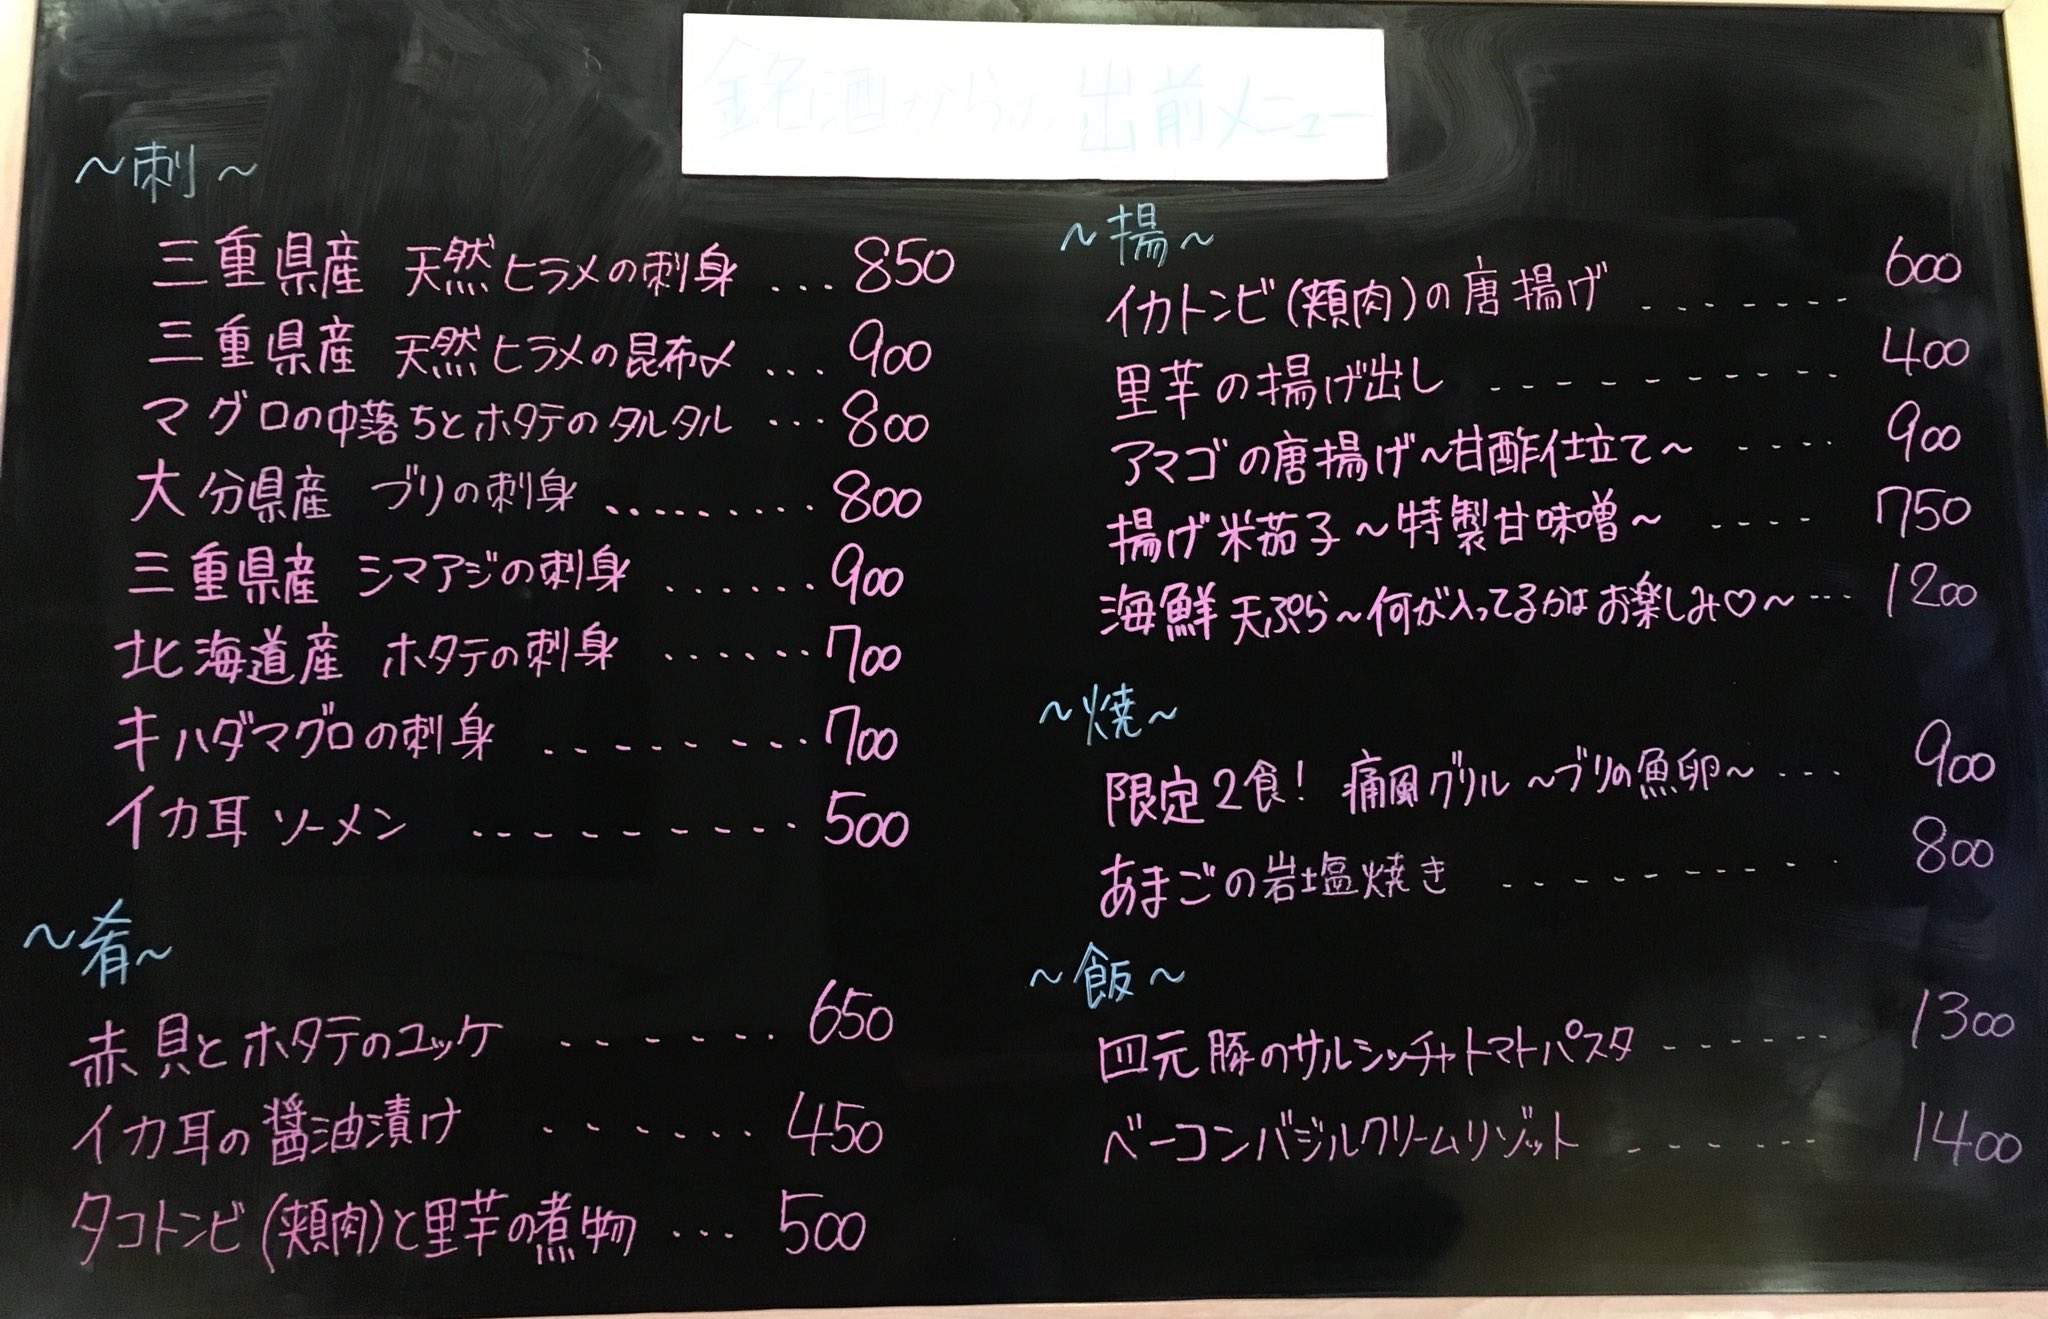 銘酒ならの 出前メニュー
～刺～
三重県産 天然ヒラメの刺身 ... 850
三重県産 天然ヒラメの昆布〆 ... 900
マグロの中落ちとホタテのタルタル ... 800
大分県産 ブリの刺身 ......... 800
三重県産 シマアジの刺身 ...... 900
北海道産 ホタテの刺身 ...... 700
キハダマグロの刺身 ........ 700
イカ耳ソーメン .......... 500
～肴～
赤貝とホタテのユッケ ....... 650
イカ耳の醤油漬け ...... 450
タコトンビ(頬肉)と里芋の煮物 ... 500
～揚～
イカトンビ(頬肉)の唐揚げ ....... 600
里芋の揚げ出し .......... 400
アマゴの唐揚げ～甘酢仕立て～ .... 900
揚げ米茄子～特製甘味噌～ .... 750
海鮮天ぷら～何が入ってるかはお楽しみ♡～ ... 1200
～焼～
限定2食! 痛風グリル～ブリの魚卵～ ... 900
あまごの岩塩焼き .......... 800
～飯～
四元豚のサルシッチャトマトパスタ ...... 1300
ベーコンバジルクリームリゾット ...... 1400